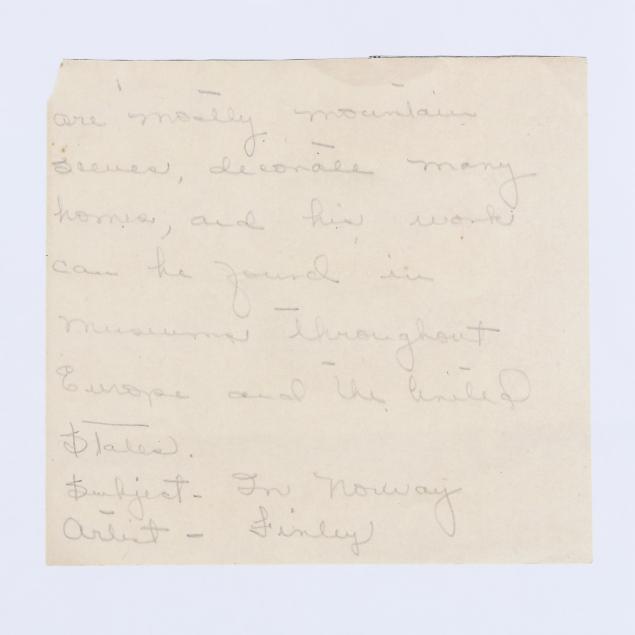 are mostly mountain
scenes, decorate many
homes, and his work
can be found in
museums throughout
Europe and the United
States.
Subject - In Norway
Artist - Finley